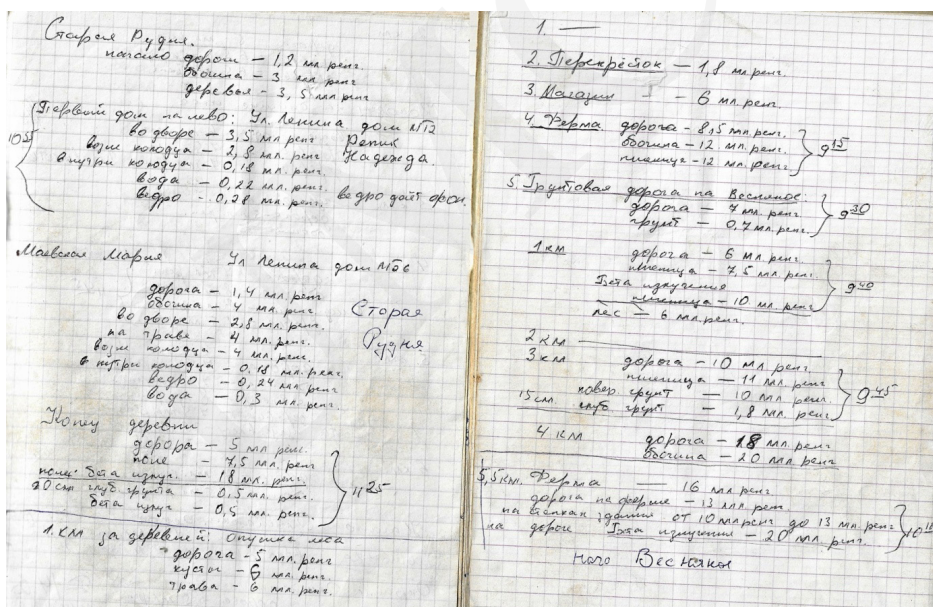 Старая Рудня.
начало дороги — 1,2 мл. ренг.
обочина — 3 мл ренг.
деревья — 3,5 мл ренг
Первый дом налево: Ул. Ленина дом №12
во дворе — 3,5 мл. ренг Репик
возле колодца — 2,8 мл. ренг Надежда
внутри колодца — 0,18 мл. ренг.
вода — 0,22 мл. ренг.
ведро — 0,28 мл. ренг. ведро даёт фон.
10 55
Маевская Мария Ул Ленина дом №66
дорога — 1,4 мл. ренг
обочина — 4 мл. ренг Старая
во дворе — 2,8 мл. ренг. Рудня
на траве — 4 мл. ренг.
возле колодца — 4 мл. ренг.
в нутри колодца — 0,18 мл. ренг.
ведро — 0,24 мл ренг
вода — 0,3 мл. ренг.
Конец деревни
дорора — 5 мл ренг.
поле — 7,5 мл. ренг
бета излуч. — 18 мл. ренг.
20 см глуб грунта — 0,5 мл. ренг.
бета излуч — 0,5 мл. ренг.
11 25
1. км за деревней: опушка леса
дорога — 5 мл. ренг
кусты — 6 мл. ренг
трава — 6 мл. ренг.
1. —
2. Перекрёсток — 1,8 мл. ренг.
3. Магазин — 6 мл. ренг.
4. Ферма. дорога — 8,5 мл. ренг.
обочина — 12 мл. ренг.
пшеница — 12 мл. ренг.
9 15
5. Грунтовая дорога на Весняное:
дорога — 7 мл. ренг.
грунт — 0,7 мл. ренг.
9 30
1 км дорога — 6 мл. ренг.
пшеница — 7,5 мл. ренг.
Бета излучения
пшеница — 10 мл. ренг
лес — 6 мл. ренг.
9 40
2 км —
3 км дорога — 10 мл ренг
пшеница — 11 мл. ренг
повер. грунт — 10 мл. ренг.
15 см. глуб грунт — 1,8 мл. ренг
9 45
4 км дорога — 18 мл. ренг
обочина — 20 мл. ренг
5,5 км. Ферма — 16 мл. ренг
дорога на ферме — 13 мл. ренг.
на стенках здания от 10 мл ренг до 13 мл. ренг
на дороги Бета излучения — 20 мл. ренг.
10
Весняны